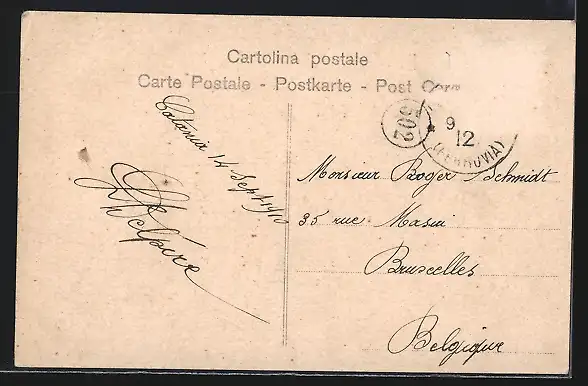 Cartolina postale
Carte Postale - Postkarte - Post
Catania 14 Sept 1910
Monsieur Roger Schmidt
35 rue Masui
Bruxelles
Belgique
502
9
12
(FERROVIA)